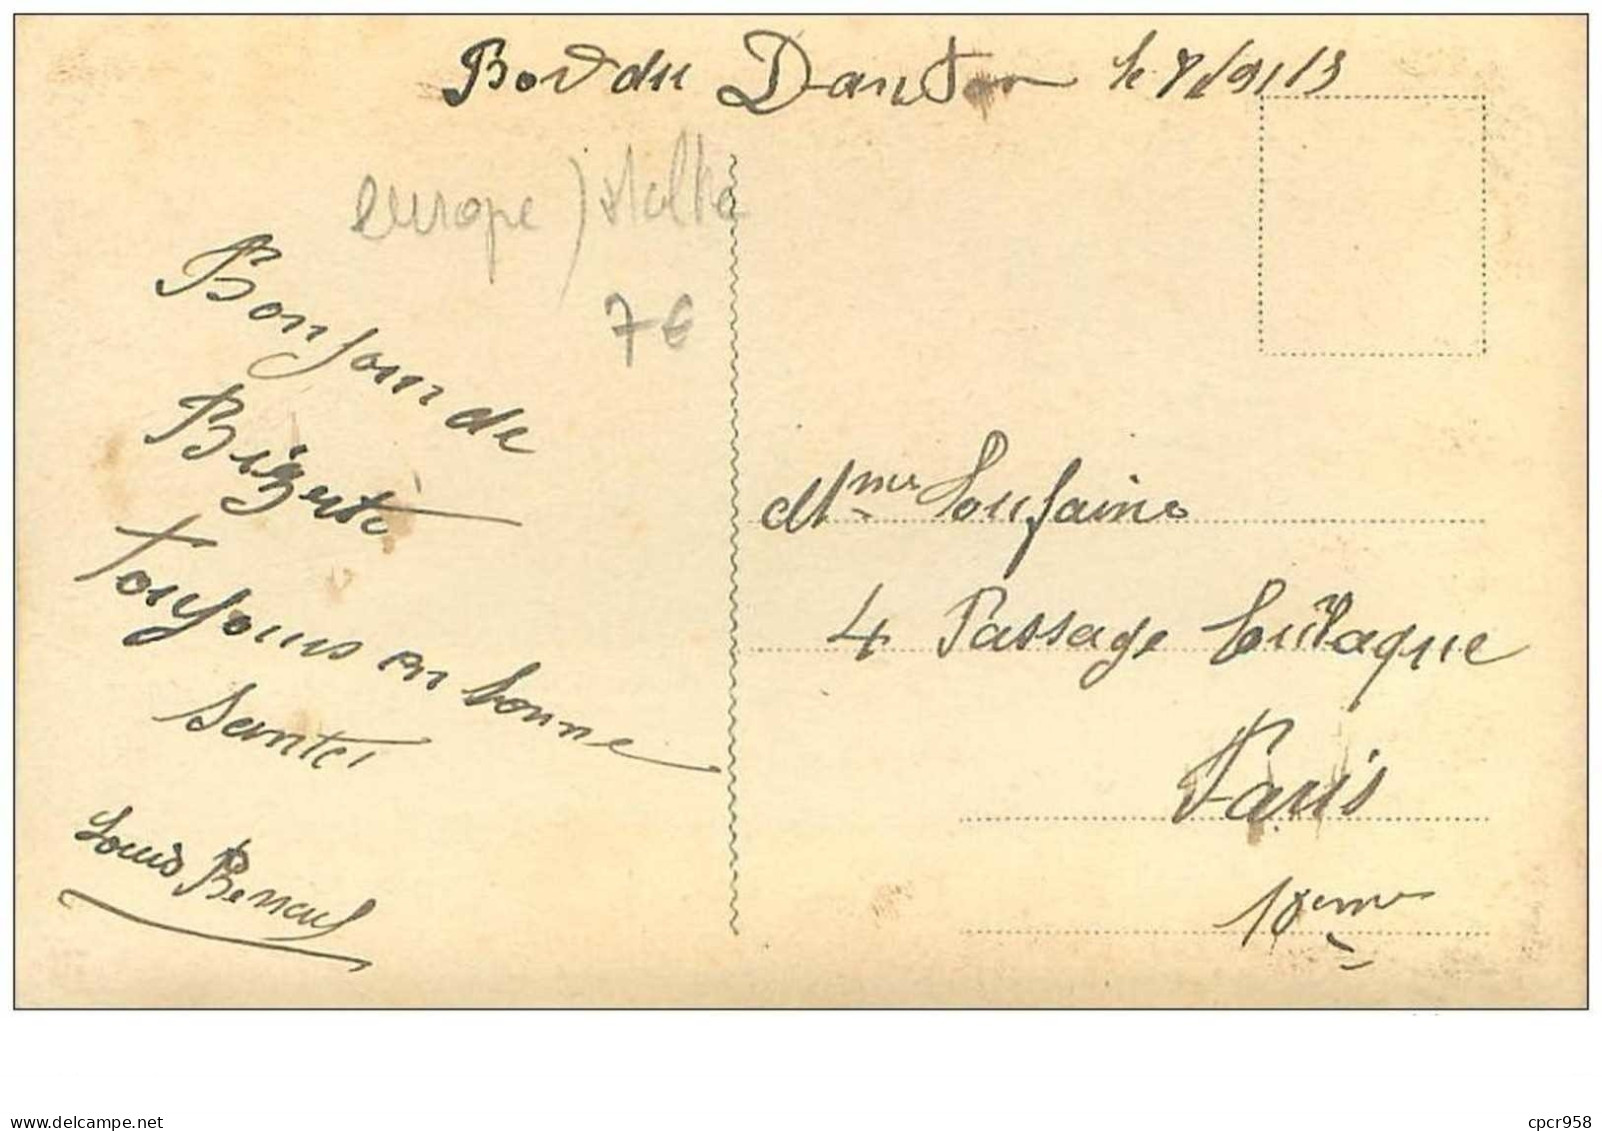 Bord du Danton le 7/9/13
europe) Malte
7€
Bonjour de
Bizerte
Toujours en bonne
santé
Louis Renaul
Mme Loufaine
4 Passage Eulaque
Paris
18eme
delcampe.net
cpcr958